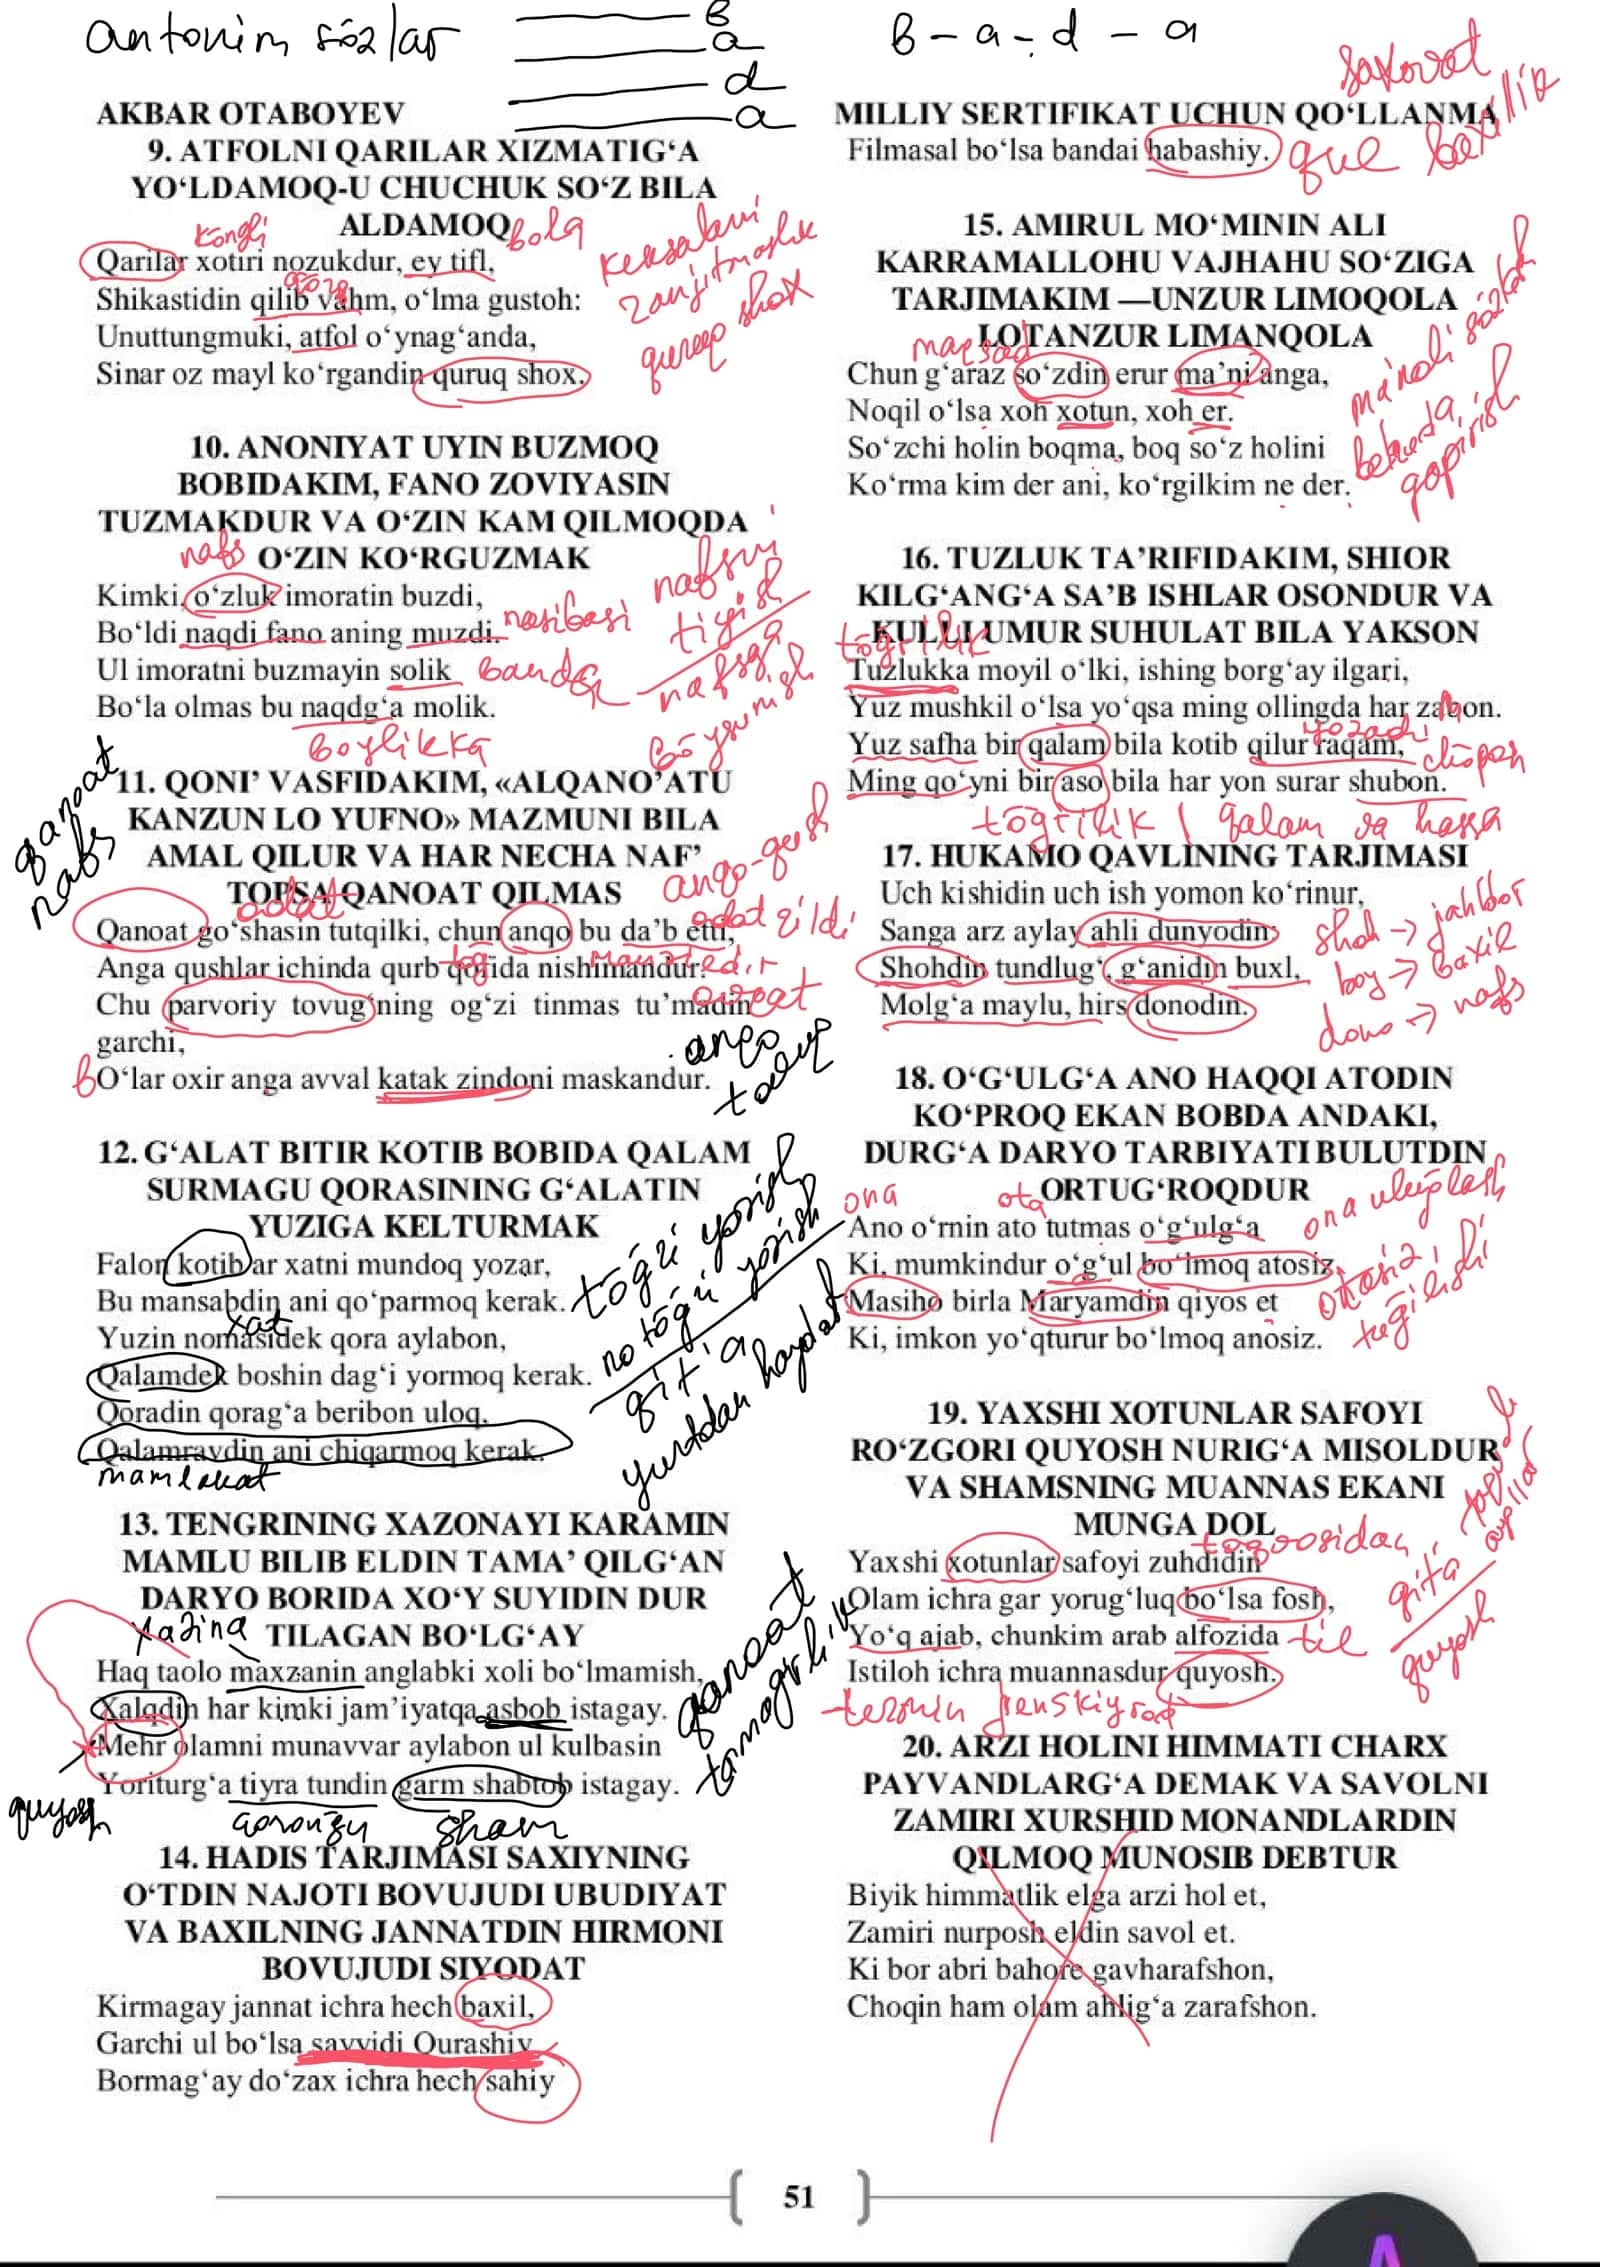 antonim sözlar
B
a
d
a
B - a - d - a
AKBAR OTABOYEV
9. ATFOLNI QARILAR XIZMATIGʻA
YOʻLDAMOQ-U CHUCHUK SOʻZ BILA
ALDAMOQ
bola
köngli
Qarilar xotiri nozukdur, ey tifl,
Shikastidin qilib vahm, oʻlma gustoh:
Unuttungmuki, atfol oʻynagʻanda,
Sinar oz mayl koʻrgandin quruq shox.
keksalarni
quruq shox
10. ANONIYAT UYIN BUZMOQ
BOBIDAKIM, FANO ZOVIYASIN
TUZMAKDUR VA OʻZIN KAM QILMOQDA
OʻZIN KOʻRGUZMAK
nafs
Kimki, oʻzluk imoratin buzdi,
Boʻldi naqdi fano aning muzdi.
nasibasi
nafsni
tiyish
Ul imoratni buzmayin solik
banda
nafsga
böysunish
Boʻla olmas bu naqdgʻa molik.
boylikka
qanoat
nafs
11. QONIʼ VASFIDAKIM, «ALQANOʼATU
KANZUN LO YUFNO» MAZMUNI BILA
AMAL QILUR VA HAR NECHA NAFʼ
TOPSA QANOAT QILMAS
odat
anqo-qush
odat qildi
Qanoat goʻshasin tutqilki, chun anqo bu daʼb etti,
Anga qushlar ichinda qurb qofida nishimandur.
tog
Chu parvoriy tovugʻning ogʻzi tinmas tuʼmadin
ovqat
garchi,
anqo
tovuq
b
Oʻlar oxir anga avval katak zindoni maskandur.
12. GʻALAT BITIR KOTIB BOBIDA QALAM
SURMAGU QORASINING GʻALATIN
YUZIGA KELTURMAK
Falon kotib ar xatni mundoq yozar,
Bu mansabdin ani qoʻparmoq kerak.
xat
Yuzin nomasidek qora aylabon,
Qalamdek boshin dagʻi yormoq kerak.
Qoradin qoragʻa beribon uloq,
Qalamravdin ani chiqarmoq kerak.
mamlakat
tögri yozish
notögri yozish
qit'a
yurtdan haydash
13. TENGRINING XAZONAYI KARAMIN
MAMLU BILIB ELDIN TAMAʼ QILGʻAN
DARYO BORIDA XOʻY SUYIDIN DUR
TILAGAN BOʻLGʻAY
xazina
Haq taolo maxzanin anglabki xoli boʻlmamish,
Xalqdin har kimki jamʼiyatqa asbob istagay.
Mehr olamni munavvar aylabon ul kulbasin
Yoriturgʻa tiyra tundin garm shabtob istagay.
quyosh
qorongu
sham
qanoat
tamagirlik
14. HADIS TARJIMASI SAXIYNING
OʻTDIN NAJOTI BOVUJUDI UBUDIYAT
VA BAXILNING JANNATDIN HIRMONI
BOVUJUDI SIYODAT
Kirmagay jannat ichra hech baxil,
Garchi ul boʻlsa sayyidi Qurashiy
Bormagʻay doʻzax ichra hech sahiy
MILLIY SERTIFIKAT UCHUN QOʻLLANMA
saxovat
Filmasal boʻlsa bandai habashiy.
que baxillik
15. AMIRUL MOʻMININ ALI
KARRAMALLOHU VAJHAHU SOʻZIGA
TARJIMAKIM —UNZUR LIMOQOLA
LOTANZUR LIMANQOLA
maqsad
Chun gʻaraz soʻzdin erur maʼni anga,
Noqil oʻlsa xoh xotun, xoh er.
Soʻzchi holin boqma, boq soʻz holini
Koʻrma kim der ani, koʻrgilkim ne der.
ma'noli sözlash
behuda
gapirish
16. TUZLUK TAʼRIFIDAKIM, SHIOR
KILGʻANGʻA SAʼB ISHLAR OSONDUR VA
KULLI UMUR SUHULAT BILA YAKSON
tögrilik
Tuzlukka moyil oʻlki, ishing borgʻay ilgari,
Yuz mushkil oʻlsa yoʻqsa ming ollingda har zabon.
yozadi
Yuz safha bir qalam bila kotib qilur raqam,
chöpon
Ming qoʻyni bir aso bila har yon surar shubon.
tögrilik | qalam va hassa
17. HUKAMO QAVLINING TARJIMASI
Uch kishidin uch ish yomon koʻrinur,
Sanga arz aylay ahli dunyodin:
Shohdin tundlugʻ, gʻanidin buxl,
Molgʻa maylu, hirs donodin.
shoh → jahldor
boy → baxil
dono → nafs
18. OʻGʻULGʻA ANO HAQQI ATODIN
KOʻPROQ EKAN BOBDA ANDAKI,
DURGʻA DARYO TARBIYATI BULUTDIN
ORTUGʻROQDUR
ona
ota
Ano oʻrnin ato tutmas oʻgʻulgʻa
Ki, mumkindur oʻgʻul boʻlmoq atosiz,
Masiho birla Maryamdin qiyos et
Ki, imkon yoʻqturur boʻlmoq anosiz.
ona uluglash
otasiz
tugilishi
19. YAXSHI XOTUNLAR SAFOYI
ROʻZGORI QUYOSH NURIGʻA MISOLDUR
VA SHAMSNING MUANNAS EKANI
MUNGA DOL
taqvosidan
Yaxshi xotunlar safoyi zuhdidin
Olam ichra gar yorugʻluq boʻlsa fosh,
Yoʻq ajab, chunkim arab alfozida
til
Istiloh ichra muannasdur quyosh.
termin jenskiy rod
ayollar
qit'a
quyosh
20. ARZI HOLINI HIMMATI CHARX
PAYVANDLARGʻA DEMAK VA SAVOLNI
ZAMIRI XURSHID MONANDLARDIN
QILMOQ MUNOSIB DEBTUR
Biyik himmatlik elga arzi hol et,
Zamiri nurposh eldin savol et.
Ki bor abri bahore gavharafshon,
Choqin ham olam ahligʻa zarafshon.
51